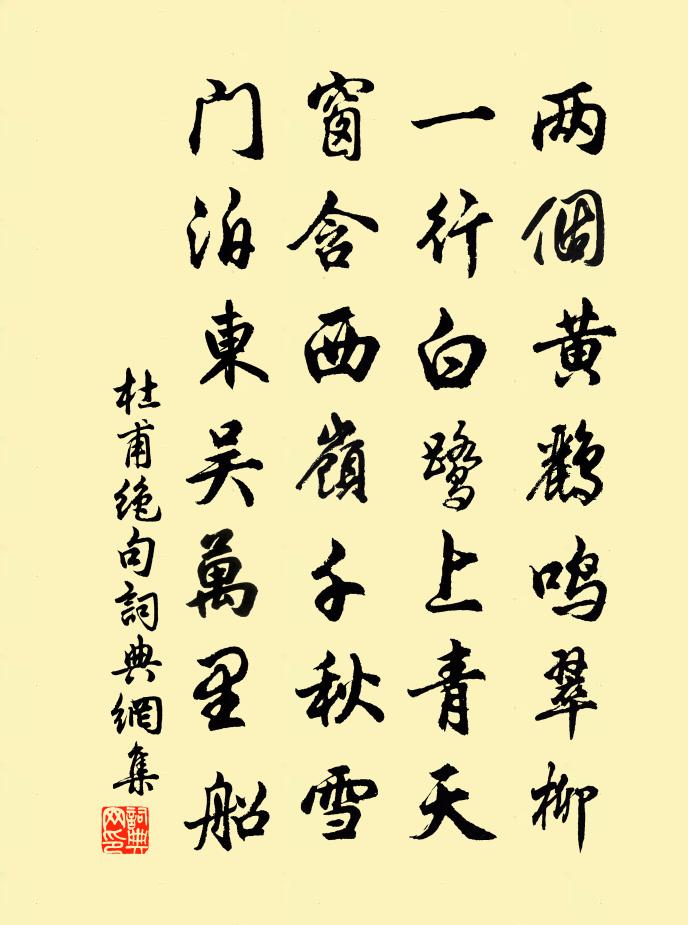 两個黄鸝鳴翠柳
一行白鷺上青天
窗含西嶺千秋雪
门泊東吴萬里船
杜甫絶句詞典網集
詞典网印